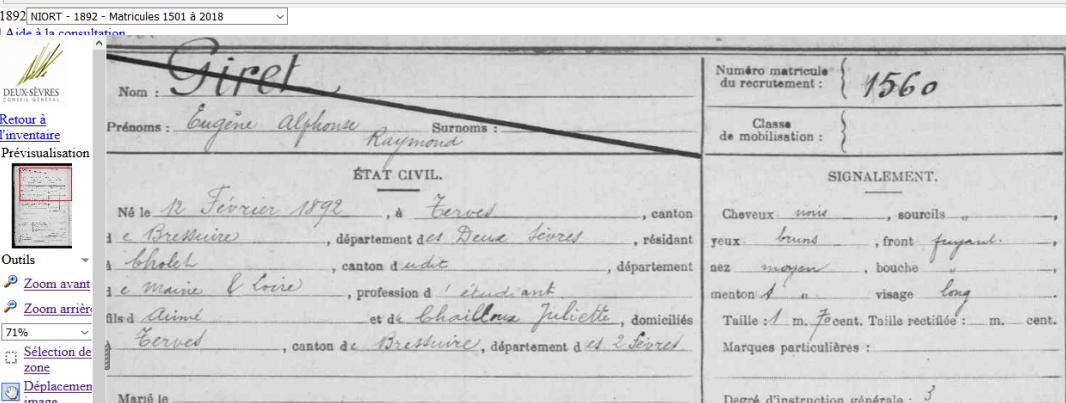 1892 NIORT - 1892 - Matricules 1501 à 2018
Aide à la consultation
DEUX-SÈVRES
CONSEIL GÉNÉRAL
Retour à
l'inventaire
Prévisualisation
Outils
Zoom avant
Zoom arrièr
71%
Sélection de
zone
Déplacemen
image
Nom : Giret
Prénoms : Eugène Alphonse Raymond Surnoms :
ÉTAT CIVIL.
Né le 12 Février 1892, à Terves, canton
de Bressuire, département des Deux Sèvres, résidant
à Cholet, canton dudit, département
de Maine & Loire, profession d'étudiant
fils d Aimé et de Chailloux Juliette, domiciliés
à Terves, canton de Bressuire, département des 2 Sèvres
Marié le
Numéro matricule
du recrutement : 1560
Classe
de mobilisation :
SIGNALEMENT.
Cheveux noirs, sourcils "
yeux bruns, front fuyant.
nez moyen, bouche "
menton " visage long
Taille : 1 m. 70 cent. Taille rectifiée : m. cent.
Marques particulières :
Degré d'instruction générale : 3